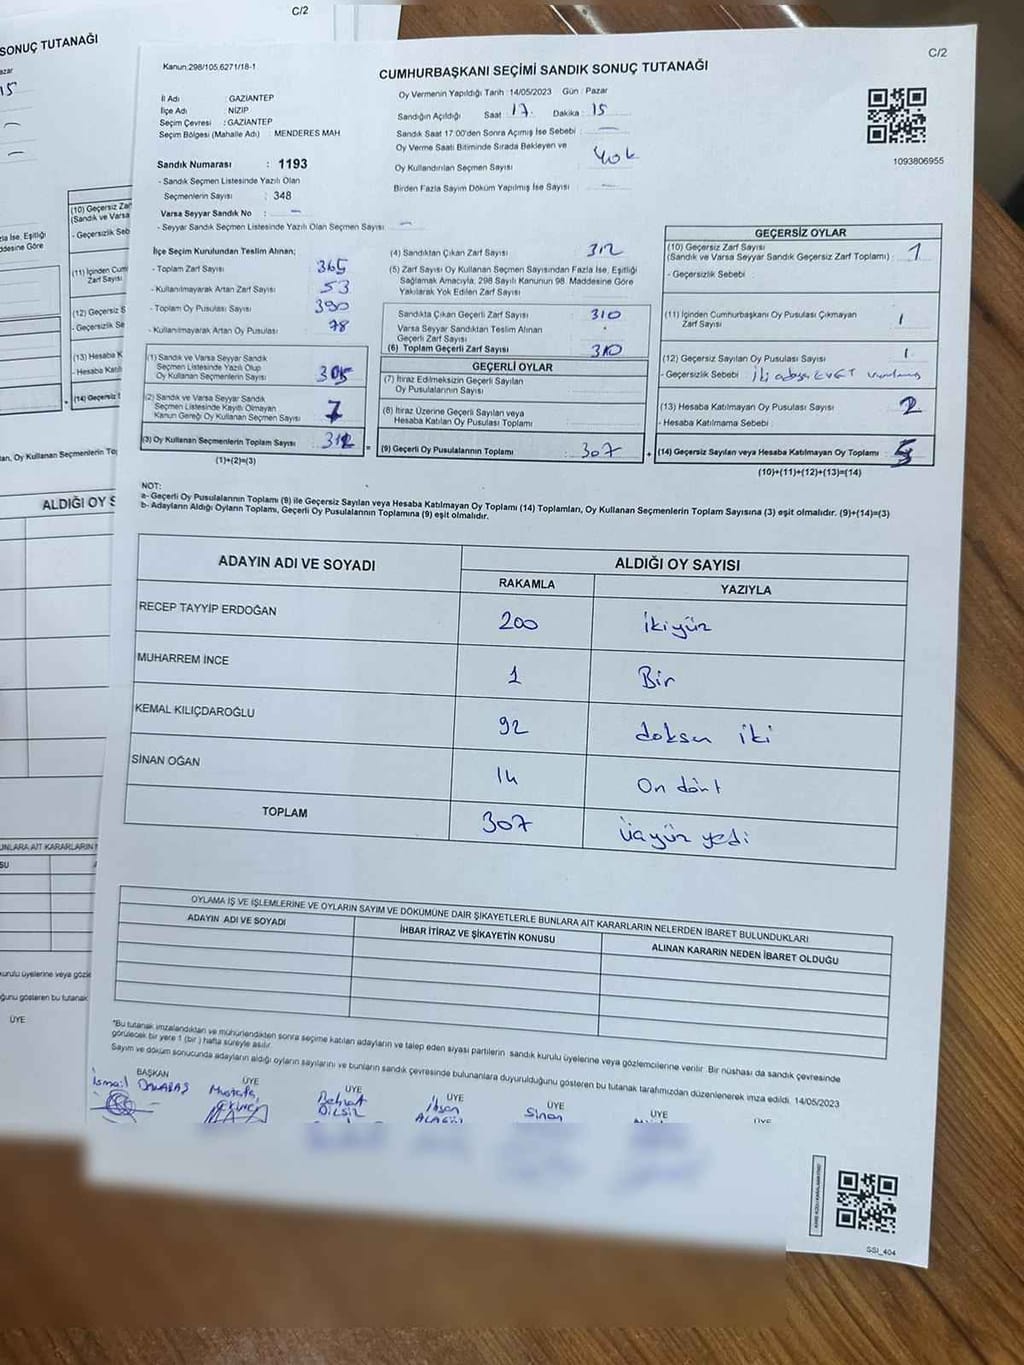 C/2
SONUÇ TUTANAĞI
C/2
Kanun:298/105,6271/18-1
CUMHURBAŞKANI SEÇİMİ SANDIK SONUÇ TUTANAĞI
İl Adı : GAZİANTEP
İlçe Adı : NİZİP
Seçim Çevresi : GAZİANTEP
Seçim Bölgesi (Mahalle Adı) : MENDERES MAH
Oy Vermenin Yapıldığı Tarih : 14/05/2023 Gün : Pazar
Sandığın Açıldığı Saat : 17. Dakika : 15
Sandık Saat 17:00'den Sonra Açılmış İse Sebebi : —
Oy Verme Saati Bitiminde Sırada Bekleyen ve
Oy Kullandırılan Seçmen Sayısı : Yok
Birden Fazla Sayım Döküm Yapılmış İse Sayısı : —
1093806955
Sandık Numarası : 1193
- Sandık Seçmen Listesinde Yazılı Olan
Seçmenlerin Sayısı : 348
Varsa Seyyar Sandık No : —
- Seyyar Sandık Seçmen Listesinde Yazılı Olan Seçmen Sayısı : —
İlçe Seçim Kurulundan Teslim Alınan;
- Toplam Zarf Sayısı : 365
- Kullanılmayarak Artan Zarf Sayısı : 53
- Toplam Oy Pusulası Sayısı : 390
- Kullanılmayarak Artan Oy Pusulası : 78
(1) Sandık ve Varsa Seyyar Sandık
Seçmen Listesinde Yazılı Olup
Oy Kullanan Seçmenlerin Sayısı : 305
(2) Sandık ve Varsa Seyyar Sandık
Seçmen Listesinde Kayıtlı Olmayan
Kanun Gereği Oy Kullanan Seçmen Sayısı : 7
(3) Oy Kullanan Seçmenlerin Toplam Sayısı : 312
(1)+(2)=(3)
(4) Sandıktan Çıkan Zarf Sayısı : 312
(5) Zarf Sayısı Oy Kullanan Seçmen Sayısından Fazla İse, Eşitliği
Sağlamak Amacıyla, 298 Sayılı Kanunun 98. Maddesine Göre
Yakılarak Yok Edilen Zarf Sayısı :
Sandıkta Çıkan Geçerli Zarf Sayısı : 310
Varsa Seyyar Sandıktan Teslim Alınan
Geçerli Zarf Sayısı :
(6) Toplam Geçerli Zarf Sayısı : 310
GEÇERLİ OYLAR
(7) İtiraz Edilmeksizin Geçerli Sayılan
Oy Pusulalarının Sayısı :
(8) İtiraz Üzerine Geçerli Sayılan veya
Hesaba Katılan Oy Pusulaları Toplamı :
(9) Geçerli Oy Pusulalarının Toplamı : 307
GEÇERSİZ OYLAR
(10) Geçersiz Zarf Sayısı
(Sandık ve Varsa Seyyar Sandık Geçersiz Zarf Toplamı) : 1
- Geçersizlik Sebebi :
(11) İçinden Cumhurbaşkanı Oy Pusulası Çıkmayan
Zarf Sayısı : 1
(12) Geçersiz Sayılan Oy Pusulası Sayısı : 1
- Geçersizlik Sebebi : İki adaya EVET
(13) Hesaba Katılmayan Oy Pusulası Sayısı : 2
- Hesaba Katılmama Sebebi :
(14) Geçersiz Sayılan veya Hesaba Katılmayan Oy Toplamı : 5
(10)+(11)+(12)+(13)=(14)
NOT:
a- Geçerli Oy Pusulalarının Toplamı (9) ile Geçersiz Sayılan veya Hesaba Katılmayan Oy Toplamı (14) Toplamları, Oy Kullanan Seçmenlerin Toplam Sayısına (3) eşit olmalıdır. (9)+(14)=(3)
b- Adayların Aldığı Oyların Toplamı, Geçerli Oy Pusulalarının Toplamına (9) eşit olmalıdır.
ADAYIN ADI VE SOYADI ALDIĞI OY SAYISI
RAKAMLA YAZIYLA
RECEP TAYYİP ERDOĞAN 200 ikiyüz
MUHARREM İNCE 1 Bir
KEMAL KILIÇDAROĞLU 92 doksan iki
SİNAN OĞAN 14 On dört
TOPLAM 307 üçyüz yedi
OYLAMA İŞ VE İŞLEMLERİNE VE OYLARIN SAYIM VE DÖKÜMÜNE DAİR ŞİKAYETLERLE BUNLARA AİT KARARLARIN NELERDEN İBARET BULUNDUKLARI
ADAYIN ADI VE SOYADI İHBAR İTİRAZ VE ŞİKAYETİN KONUSU ALINAN KARARIN NEDEN İBARET OLDUĞU
"Bu tutanak imzalandıktan ve mühürlendikten sonra seçime katılan adayların ve talep eden siyasi partilerin sandık kurulu üyelerine veya gözlemcilerine verilir. Bir nüshası da sandık çevresinde
görülecek bir yere 1 (bir) hafta süreyle asılır.
Sayım ve döküm sonucunda adayların aldığı oyların sayılarını ve bunların sandık çevresinde bulunanlara duyurulduğunu gösteren bu tutanak tarafımızdan düzenlenerek imza edildi. 14/05/2023
BAŞKAN ÜYE ÜYE ÜYE ÜYE ÜYE ÜYE
İsmail Mustafa Behçet İhsan Sinan
EKİNCİ
SSI_404